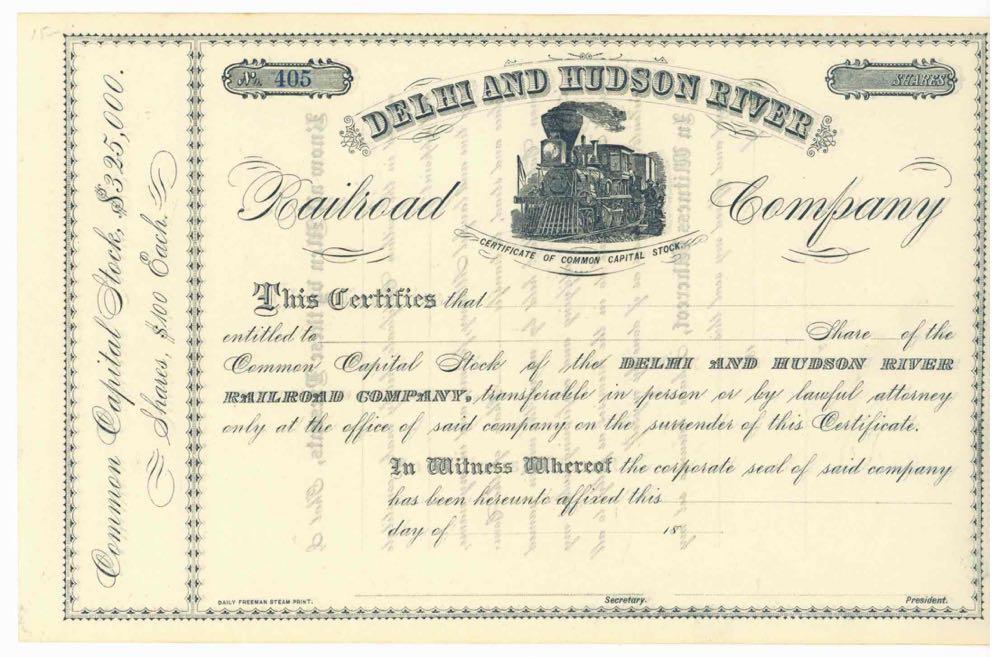 Common Capital Stock, $325,000.
Shares, $100 Each.
No. 405
SHARES
DELHI AND HUDSON RIVER
Railroad Company
CERTIFICATE OF COMMON CAPITAL STOCK.
This Certifies that
entitled to Share of the
Common Capital Stock of the DELHI AND HUDSON RIVER
RAILROAD COMPANY, transferable in person or by lawful attorney
only at the office of said company on the surrender of this Certificate.
In Witness Whereof the corporate seal of said company
has been hereunto affixed this
day of 18
DAILY FREEMAN STEAM PRINT.
Secretary.
President.